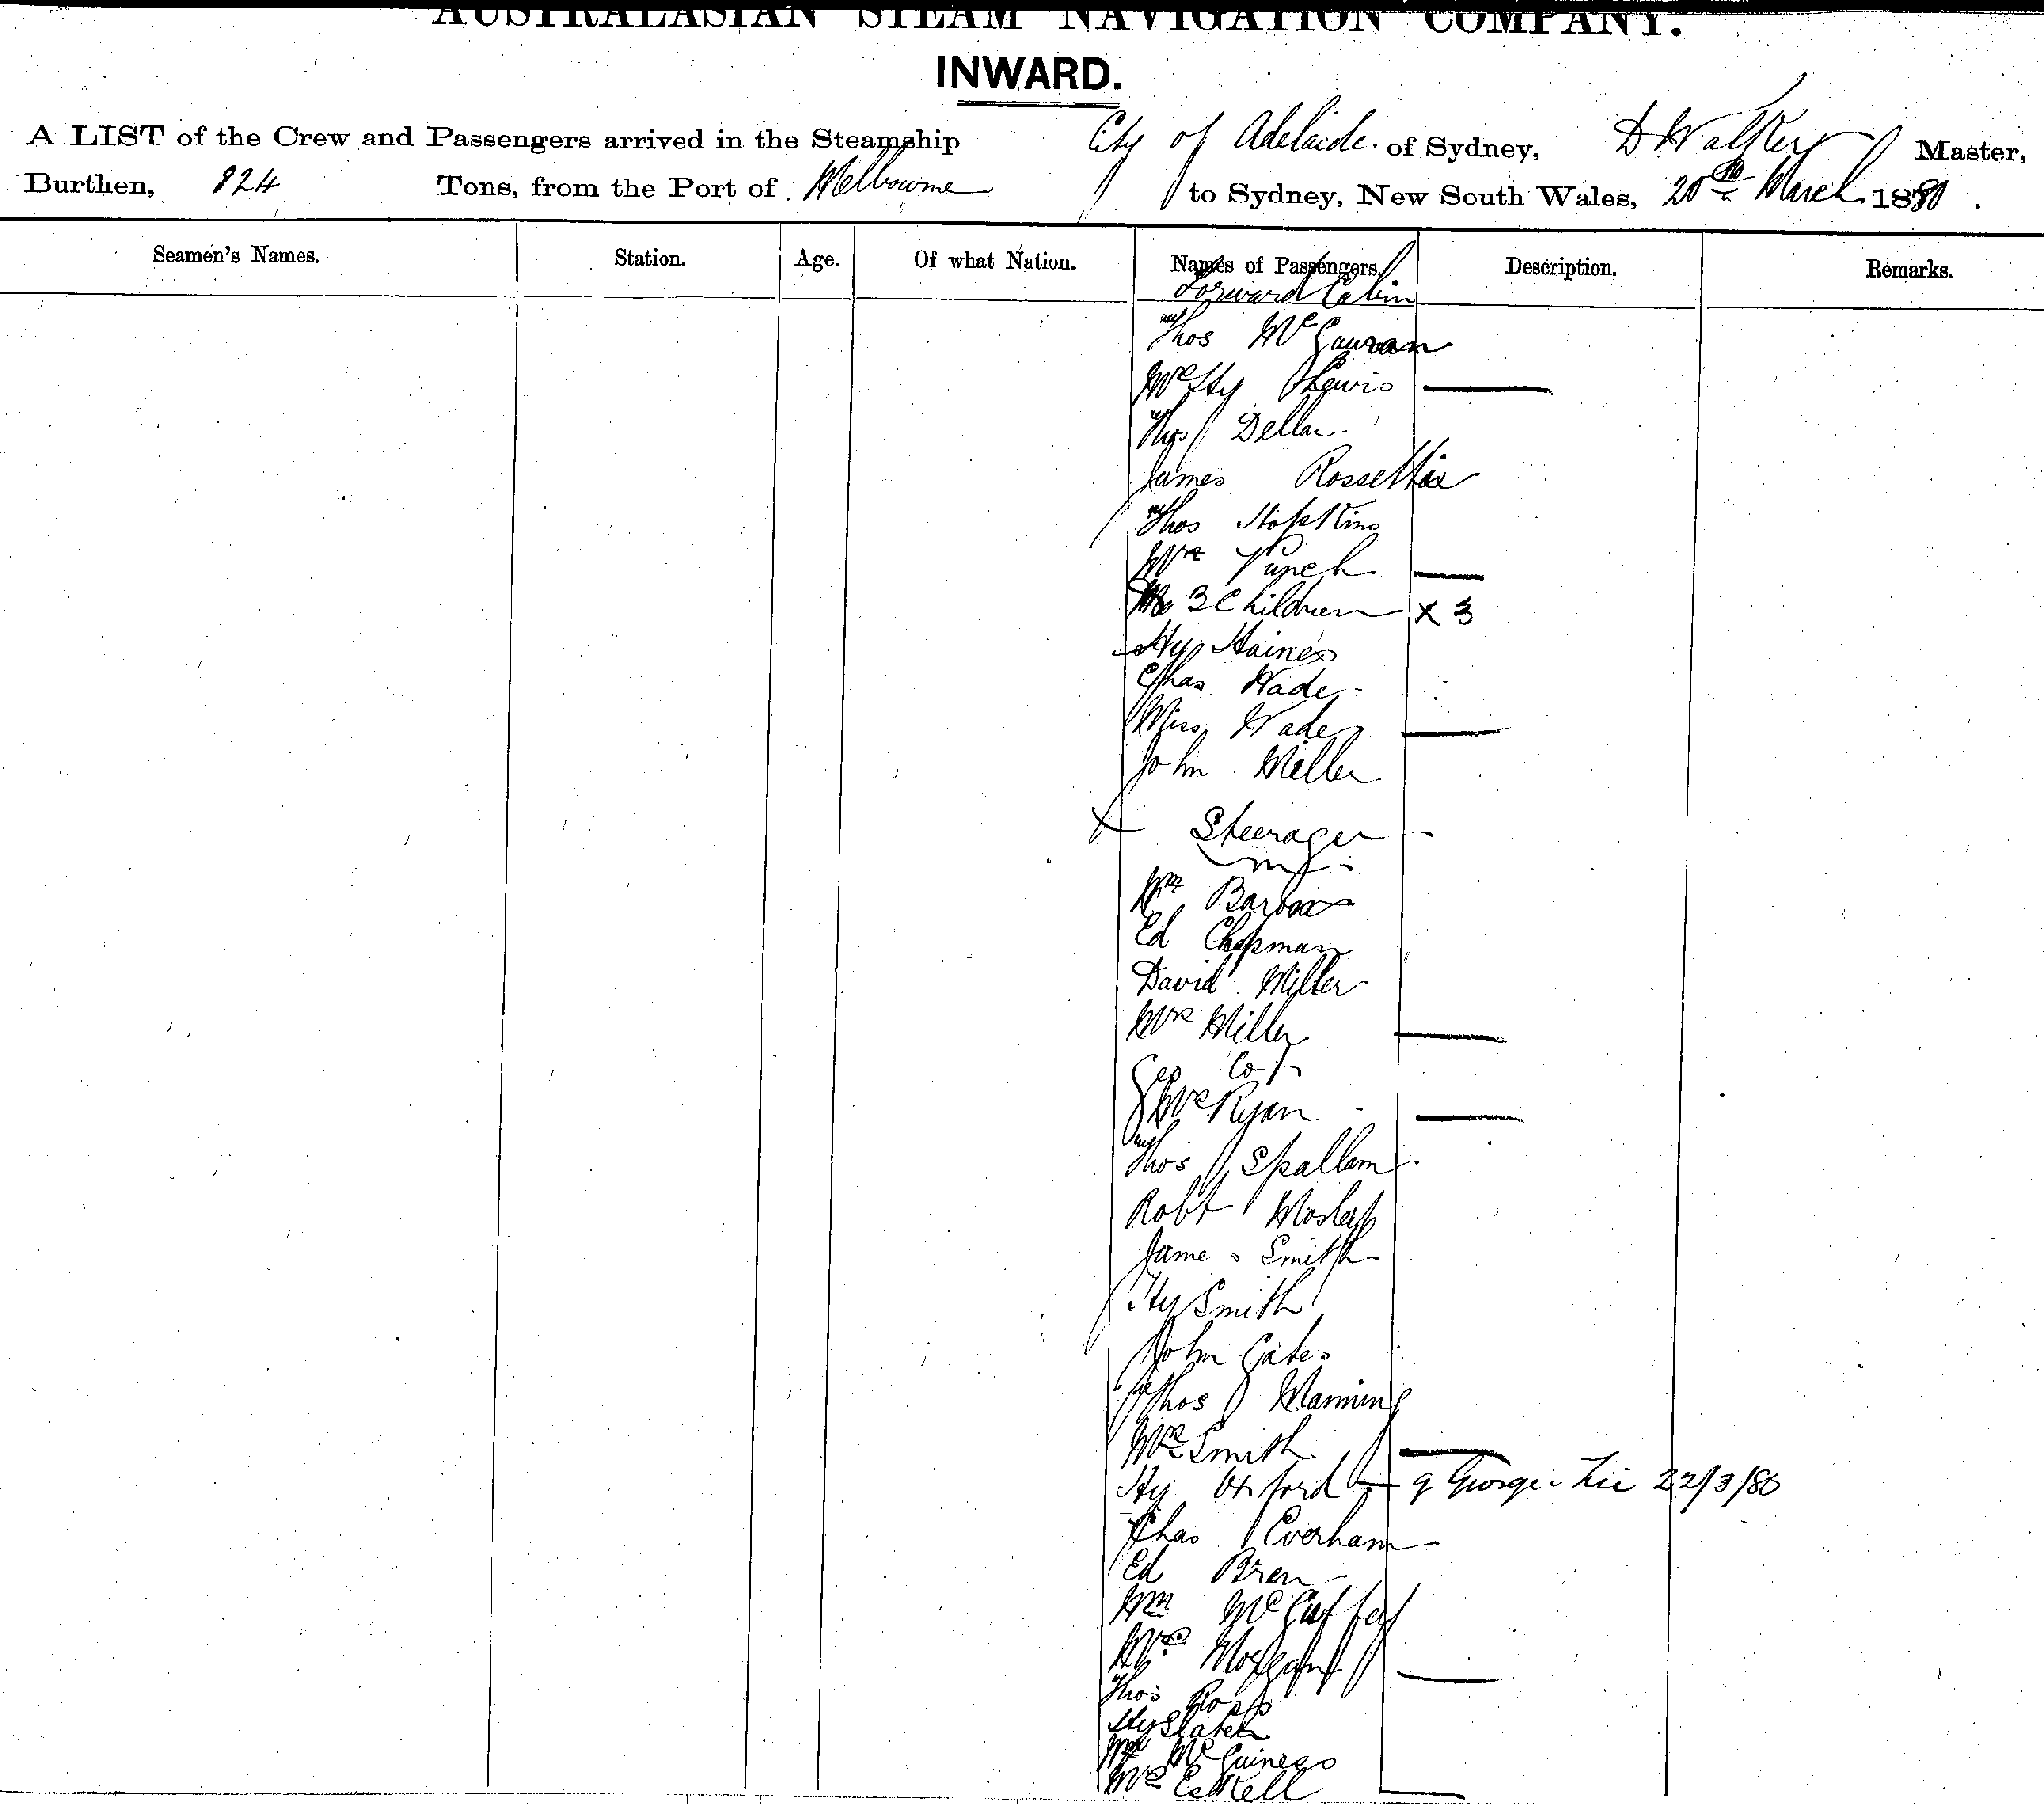 AUSTRALASIAN STEAM NAVIGATION COMPANY.
INWARD.
A LIST of the Crew and Passengers arrived in the Steamship City of Adelaide of Sydney, D Walker Master,
Burthen, 824 Tons, from the Port of Melbourne to Sydney, New South Wales, 20th March 1880.
Seamen's Names. Station. Age. Of what Nation. Names of Passengers. Description. Remarks.
Forward Cabin
Thos McGauran
Hy Lewis
Thos Dellar
James
Thos Hopkins
Mrs Punch
3 Children x 3
Hy Haines
Chas Wade
Miss Wade
John Miller
Steerage
Wm
Ed Chapman
David Miller
Mrs Miller
Geo Cox
Mrs Ryan
Thos
Robt
James Smith
Hy Smith
John Gates
Thos Manning
Mrs Smith
Hy Oxford George 22/3/80
Chas Everham
Ed Bren
Wm McCaffery
Mrs Morgan
Thos Ross
Hy Slater
Wm McGuiness
Mrs Eskell